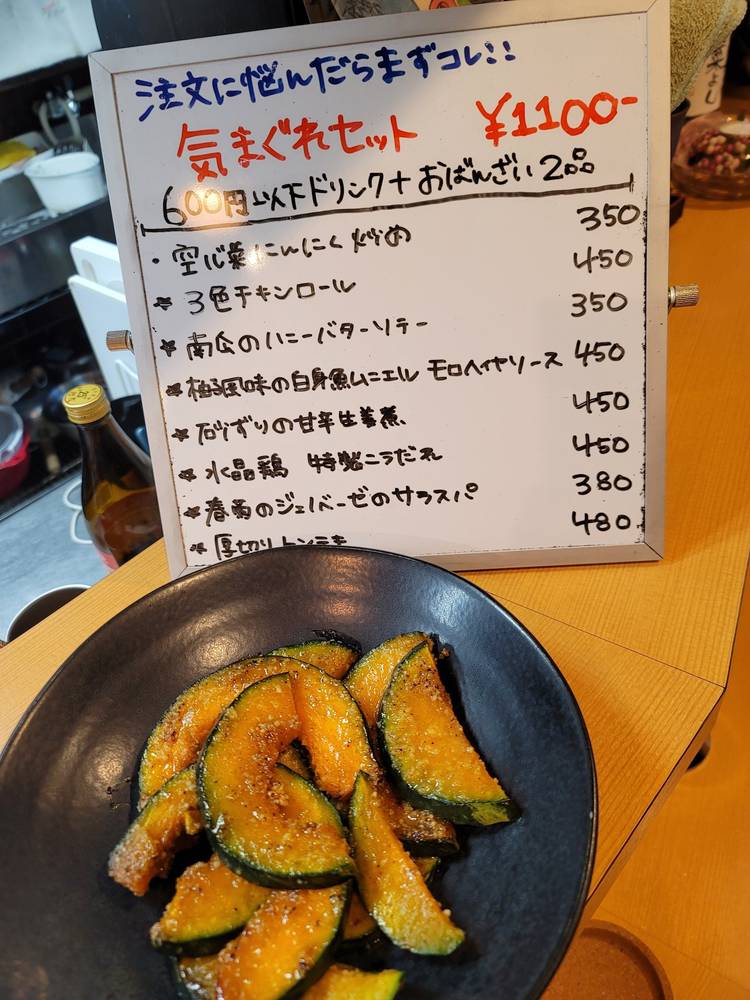 注文に悩んだらまずコレ!!
気まぐれセット ¥1100-
600円以下ドリンク+おばんざい2品
・空心菜にんにく炒め 350
★3色チキンロール 450
★南瓜のハニーバターソテー 350
★柚子風味の白身魚ムニエル モロヘイヤソース 450
★砂ずりの甘辛生姜煮 450
★水晶鶏 特製ニラだれ 450
★春菊のジェノベーゼのサラスパ 380
★厚切りトンテキ 480